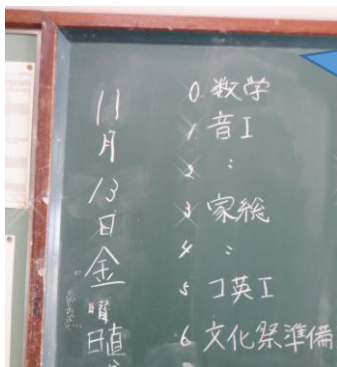 11月13日金曜
日直
0. 数学
1 音I
2 〃
3 家総
4 〃
5 コ英I
6 文化祭準備